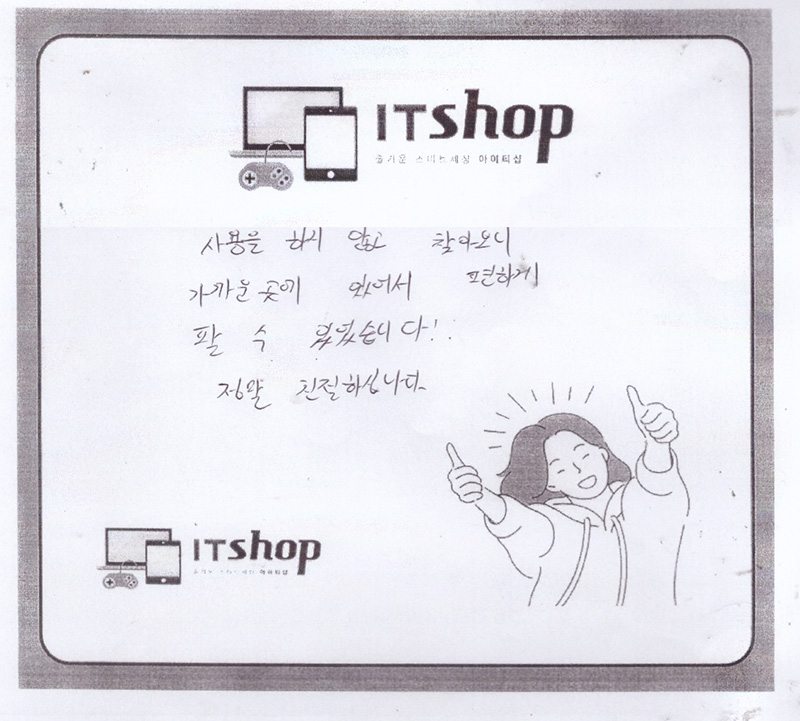 ITshop
즐거운 스마트세상 아이티샵
사용을 하지 않고 찾아오니
가까운 곳에 있어서 편하게
팔 수 있었습니다!
정말 친절하십니다.
ITshop
즐거운 스마트세상 아이티샵